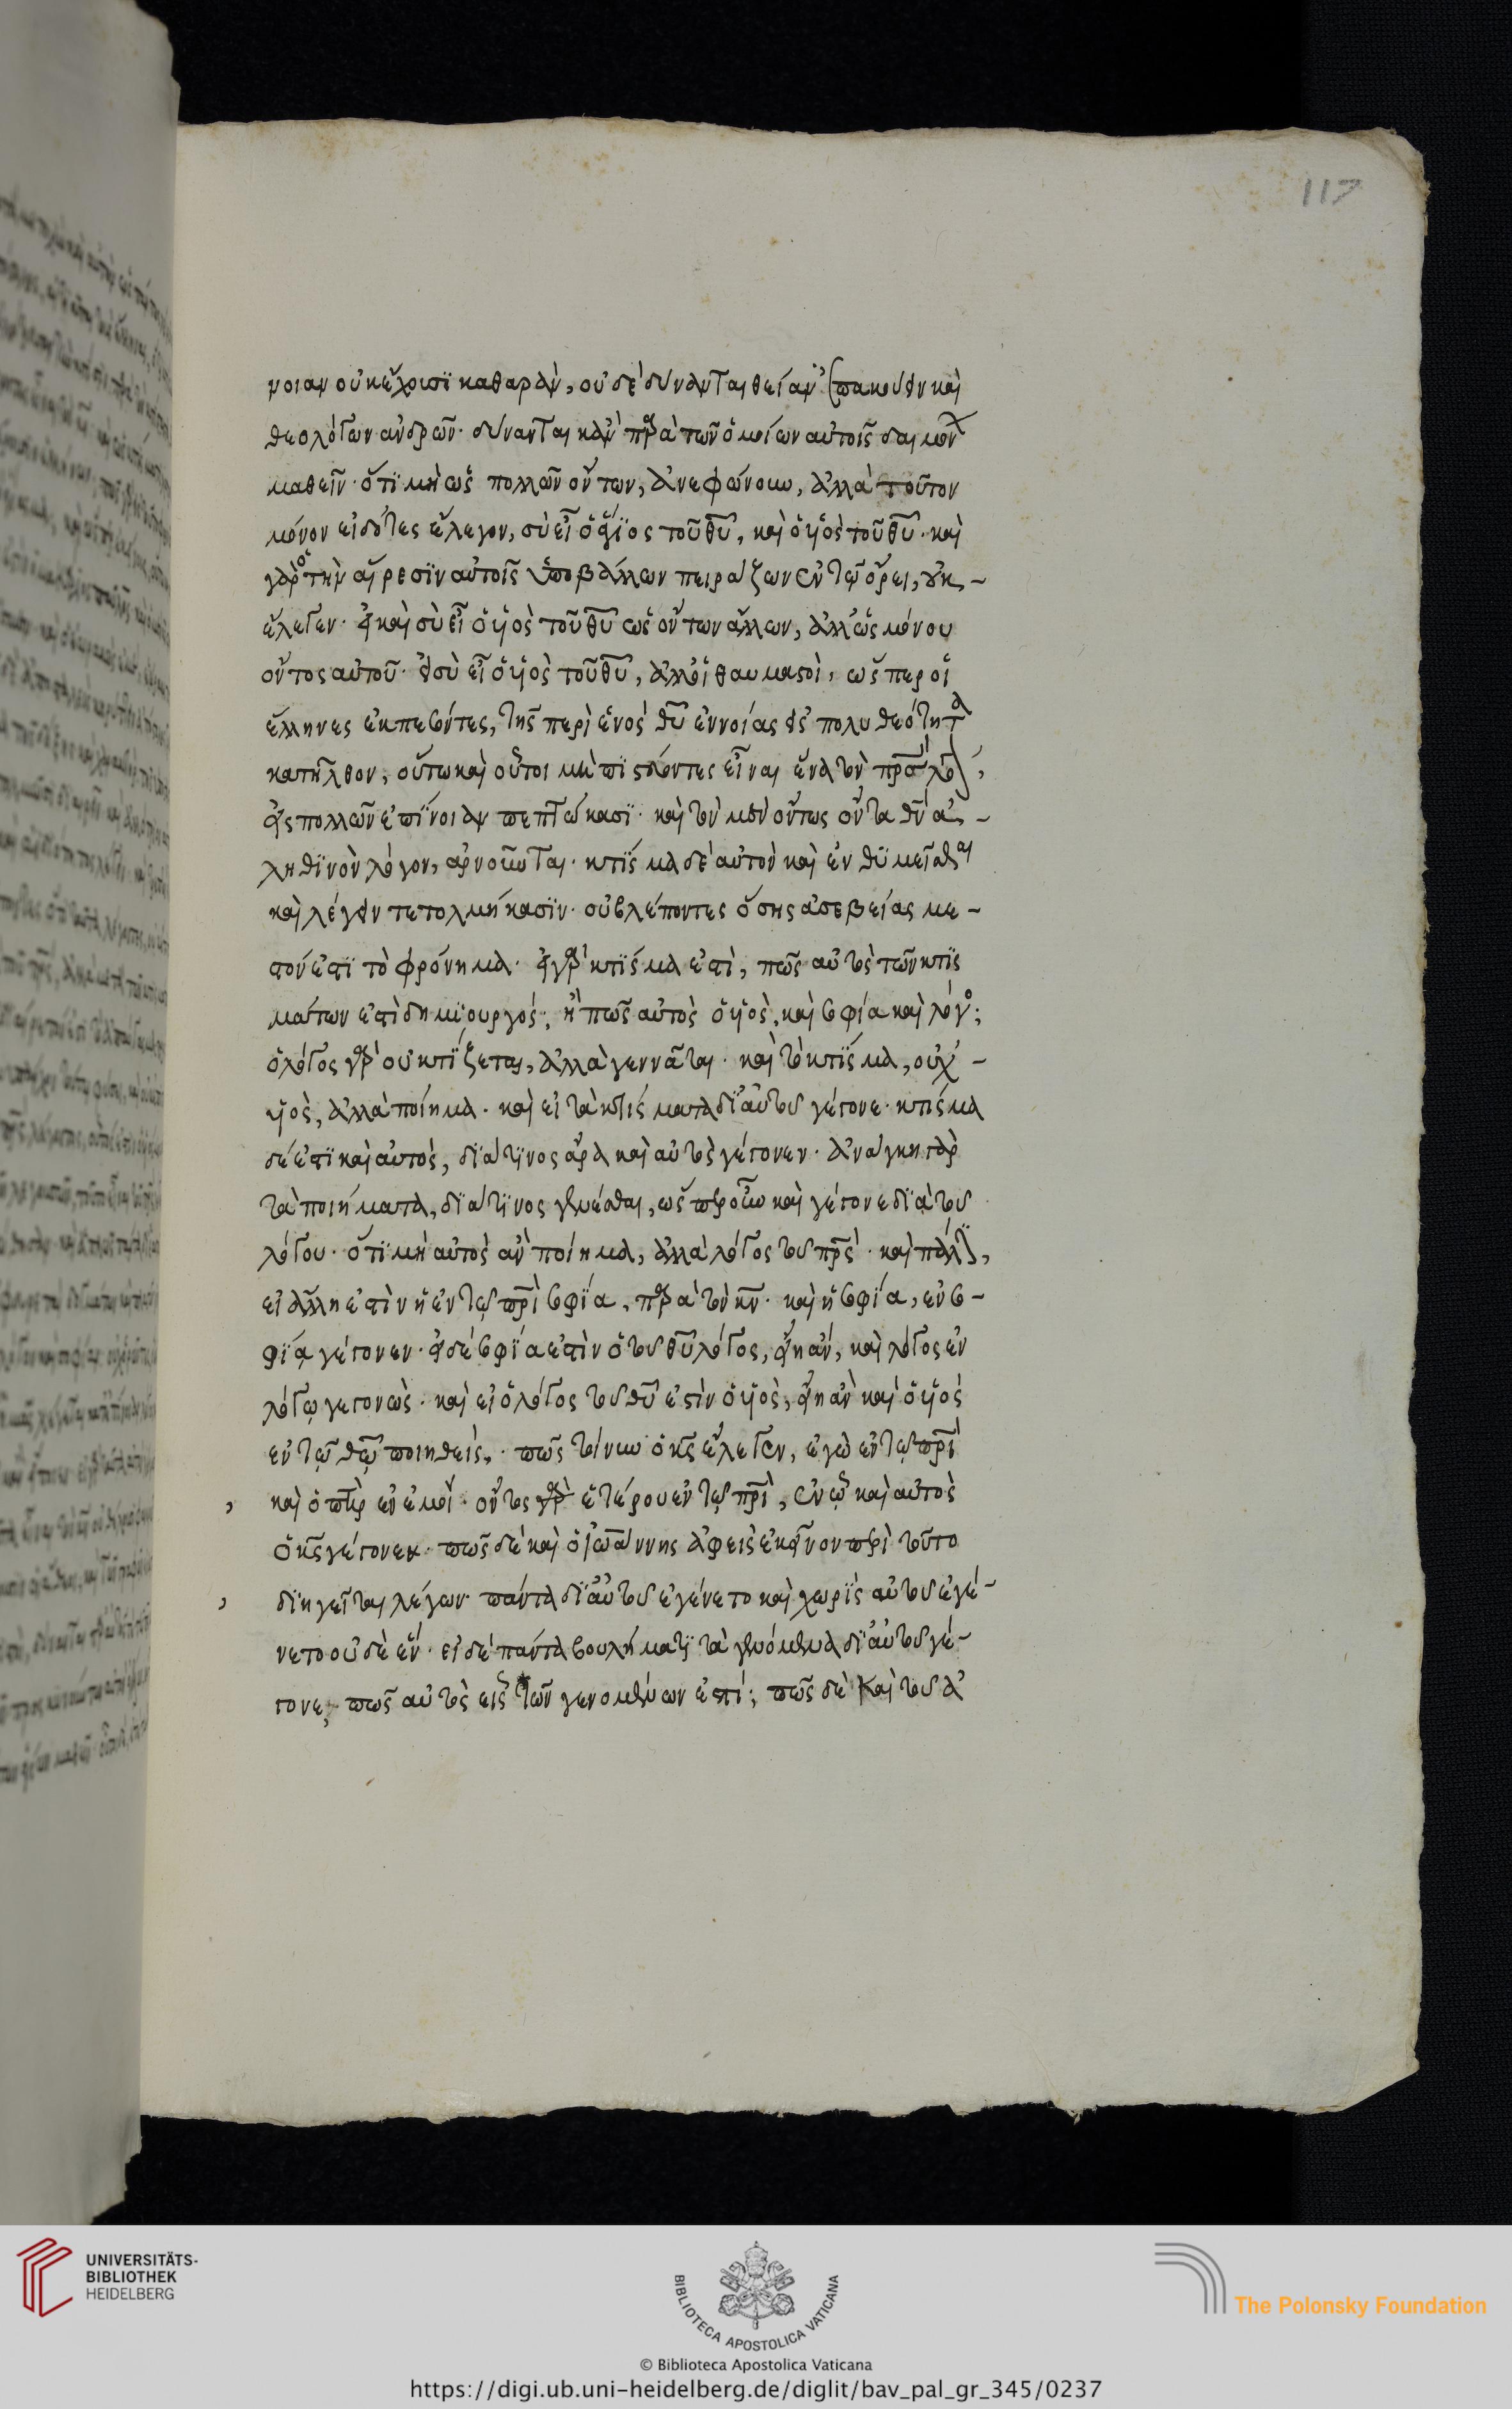 117
νοιαν οὐκ ἔχουσϊ καθαρὰν, οὐδὲ δύνανται θείων ἐπακούειν καὶ
θεολόγων ἀνδρῶν· δύνανται κἂν παρὰ τῶν ὁμοίων αὐτοῖς δαιμόν
μαθεῖν· ὅτϊ μὴ ὡς πολλῶν ὄντων, ἀνεφώνουν, ἀλλὰ τοῦτον
μόνον εἰδότες ἔλεγον, σὺ εἶ ὁ ἅγϊος τοῦ θυ, καὶ ὁ υἱὸς τοῦ θυ· καὶ
γὰρ ὁ τὴν αἵρεσϊν αὐτοῖς ὑποβάλλων πειράζων ἐν τῷ ὄρει, οὐκ
ἔλεγεν· εἰ καὶ σὺ εἶ ὁ υἱὸς τοῦ θυ ὡς ὄντων ἄλλων, ἀλλ' ὡς μόνου
ὄντος αὐτοῦ· εἰ σὺ εἶ ὁ υἱὸς τοῦ θυ, ἀλλ' οἱ θαυμαστοὶ, ὥσπερ οἱ
ἕλληνες ἐκπεσόντες, τῆς περὶ ἑνὸς θυ ἐννοίας εἰς πολυθεότητα
κατῆλθον, οὕτω καὶ οὗτοι μὴ πϊστεύοντες εἶναι ἕνα τὸν πρς λόγον,
εἰς πολλῶν ἐπϊνοιαν πεπτώκασϊ· καὶ τὸν μὲν ὄντως ὄντα θν ἀ-
ληθϊνὸν λόγον, ἀρνοῦνται· κτϊσμα δὲ αὐτὸν καὶ ἐνθϋμεῖσθαι
καὶ λέγειν τετολμήκασϊν· οὐ βλέποντες ὅσης ἀσεβείας με-
στόν ἐστϊ τὸ φρόνημα· εἰ γὰρ κτϊσμα ἐστὶ, πῶς αὐτὸς τῶν κτϊσ
μάτων ἐστὶ δημϊουργός; ἢ πῶς αὐτὸς ὁ υἱὸς, καὶ σοφία καὶ λόγος;
ὁ λόγος γὰρ οὐ κτϊζεται, ἀλλὰ γεννᾶται· καὶ τὸ κτϊσμα, οὐχ'-
υἱὸς, ἀλλὰ ποίημα· καὶ εἰ τὰ κτϊσματα δϊ αὐτοῦ γέγονε· κτϊσμα
δέ ἐστϊ καὶ αὐτὸς, δϊὰ τϊνος ἄρα καὶ αὐτὸς γέγονεν· ἀνάγκη γὰρ
τὰ ποιήματα, δϊὰ τϊνος γενέσθαι, ὥσπερ οὖν καὶ γέγονε δϊὰ τοῦ
λόγου· ὅτϊ μὴ αὐτὸς ἂν ποίημα, ἀλλὰ λόγος τοῦ πρς· καὶ πάλϊν,
εἰ ἄλλη ἐστὶν ἡ ἐν τῷ πρὶ σοφϊα, παρὰ τὸν κν· καὶ ἡ σοφϊα, ἐν σο-
φϊᾳ γέγονεν· εἰ δὲ σοφϊα ἐστὶν ὁ τοῦ θυ λόγος, εἴη ἂν, καὶ λόγος ἐν
λόγῳ γεγονὼς· καὶ εἰ ὁ λόγος τοῦ θυ ἐστὶν ὁ υἱὸς, εἴη ἂν καὶ ὁ υἱὸς
ἐν τῷ θῷ ποιηθείς· πῶς τοίνυν ὁ κς ἔλεγεν, ἐγὼ ἐν τῷ πρὶ
καὶ ὁ πηρ ἐν ἐμοὶ· ὄντος γὰρ ἑτέρου ἐν τῷ πρὶ, ἐν ᾧ καὶ αὐτὸς
ὁ κς γέγονεν· πῶς δὲ καὶ ὁ ἰωάννης ἀφεὶς ἐκεῖνον περὶ τοῦτο
δϊηγεῖται λέγων· πάντα δϊ αὐτοῦ ἐγένετο καὶ χωρϊς αὐτοῦ ἐγέ-
νετο οὐδὲ ἕν· εἰ δὲ πάντα βουλήματϊ τὰ γενόμενα δϊ αὐτοῦ γέ-
γονε, πῶς αὐτὸς εἷς τῶν γενομένων ἐστί; πῶς δὲ καὶ τοῦ ἀ
UNIVERSITÄTS-
BIBLIOTHEK
HEIDELBERG
BIBLIOTECA APOSTOLICA VATICANA
The Polonsky Foundation
© Biblioteca Apostolica Vaticana
https://digi.ub.uni-heidelberg.de/diglit/bav_pal_gr_345/0237